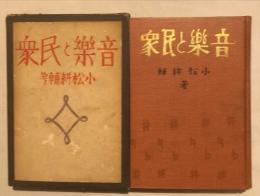 音樂と民衆
小松耕輔著
音樂と民衆
小松耕輔
著